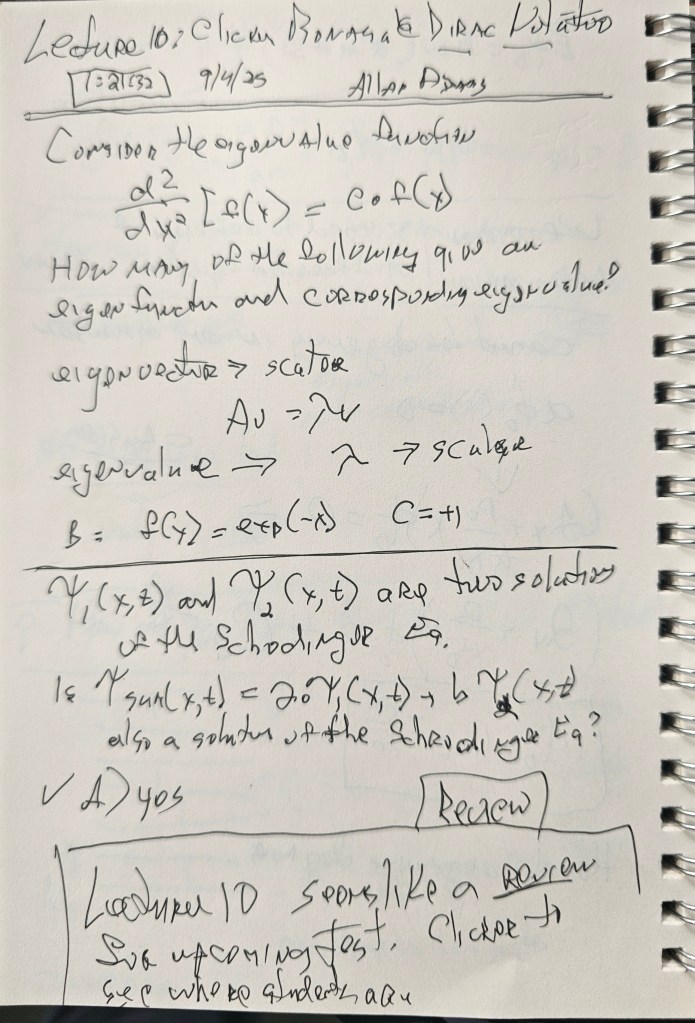 Lecture 10: Clicker Bonanza & DIRAC Notation
1:21:32 9/4/25 Allan Adams
Consider the eigenvalue function
d²/dx² [f(x) = C • f(x)
How many of the following give an
eigenfunctn and corresponding eigenvalue?
eigenvector → scator
Av = λv
eigenvalue → λ → scalar
B = f(x) = exp(-x) C = +1
Ψ₁(x,t) and Ψ₂(x,t) are two solutions
of the Schodinger Eq.
Is Ψsum(x,t) = a•Ψ₁(x,t) + bΨ₂(x,t)
also a soluton of the Schrodinger Eq?
✓ A) yes
Review
Lecture 10 seems like a Review
for upcoming test. Clicker to
see where students are